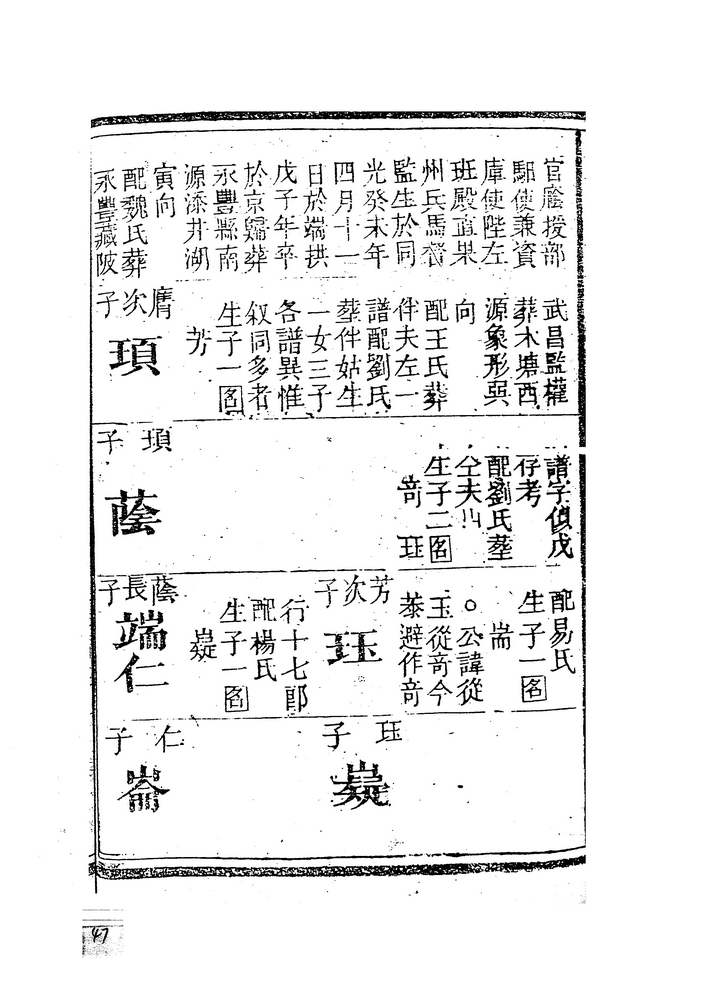 官廕授部
駟使兼資
庫使陛左
班殿直果
州兵馬督
監生於同
光癸未年
四月十一
日於端拱
戊子年卒
於京歸葬
永豐縣南
源漆井湖
寅向
配魏氏葬
永豐藏陂
武昌監權
葬木塘西
源象形巽
向
配王氏葬
伴夫左一
譜配劉氏
葬伴姑生
一女三子
各譜異惟
叙同多者
生子一名
芳
膺次子
頊
譜字傎戊
仔考
配劉氏葬
仝夫山
生子二名
岢 珏
頊子
蔭
配易氏
生子一名
耑
○公諱從
玉從岢今
叅避作岢
芳次子
珏
行十七郎
配楊氏
生子一名
嶷
蔭長子
端仁
珏子
嶷
仁子
崙
47